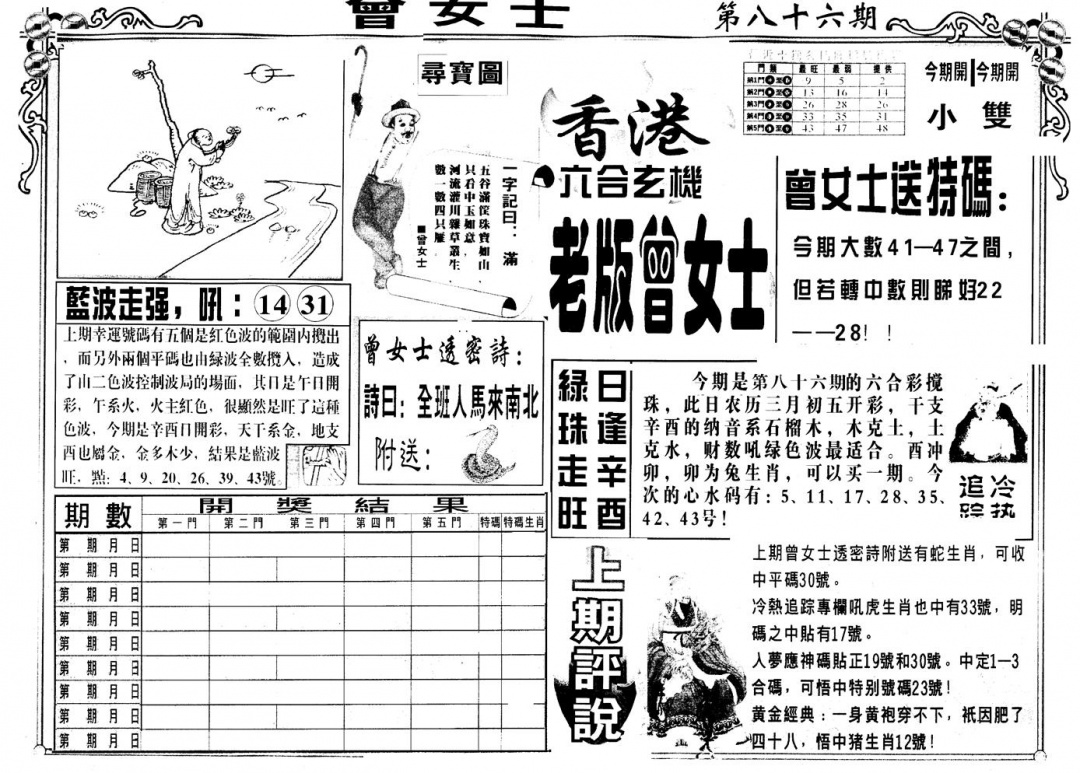 曾女士
第八十六期
尋寶圖
一字記曰：滿
五谷滿筐珠寶如山
只看中玉如意，
河流灌川雜草叢生
數一數四只雁
■曾女士
香港
六合玄機
老版曾女士
門類 最旺 最弱 提供
第1門 9 5 2
第2門 13 16 14
第3門 26 28 26
第4門 33 35 31
第5門 43 47 48
今期開 今期開
小 雙
曾女士送特碼：
今期大數41—47之間，
但若轉中數則睇好22
——28！！
藍波走强，吼：14 31
上期幸運號碼有五個是红色波的範圍内攪出
，而另外兩個平碼也由緑波全數攬入，造成
了山二色波控制波局的場面，其日是午日開
彩，午系火，火主紅色，很顯然是旺了這種
色波，今期是辛酉日開彩，天干系金，地支
酉也屬金，金多木少，結果是藍波
旺，點：4、9、20、26、39、43號。
曾女士透密詩：
詩曰：全班人馬來南北
附送：
日逢辛酉
綠珠走旺
今期是第八十六期的六合彩搅
珠，此日农历三月初五开彩，干支
辛酉的纳音系石榴木，木克土，土
克水，财数吼绿色波最适合。酉冲
卯，卯为兔生肖，可以买一期。今
次的心水码有：5、11、17、28、35、
42、43号！
冷热
追踪
期數 開獎結果
第一門 第二門 第三門 第四門 第五門 特碼 特碼生肖
第 期 月 日
第 期 月 日
第 期 月 日
第 期 月 日
第 期 月 日
第 期 月 日
第 期 月 日
第 期 月 日
第 期 月 日
上期評說
上期曾女士透密詩附送有蛇生肖，可收
中平碼30號。
冷熱追踪專欄吼虎生肖也中有33號，明
碼之中貼有17號。
人夢應神碼貼正19號和30號。中定1—3
合碼，可悟中特别號碼23號！
黄金經典：一身黄袍穿不下，祇因肥了
四十八，悟中猪生肖12號！